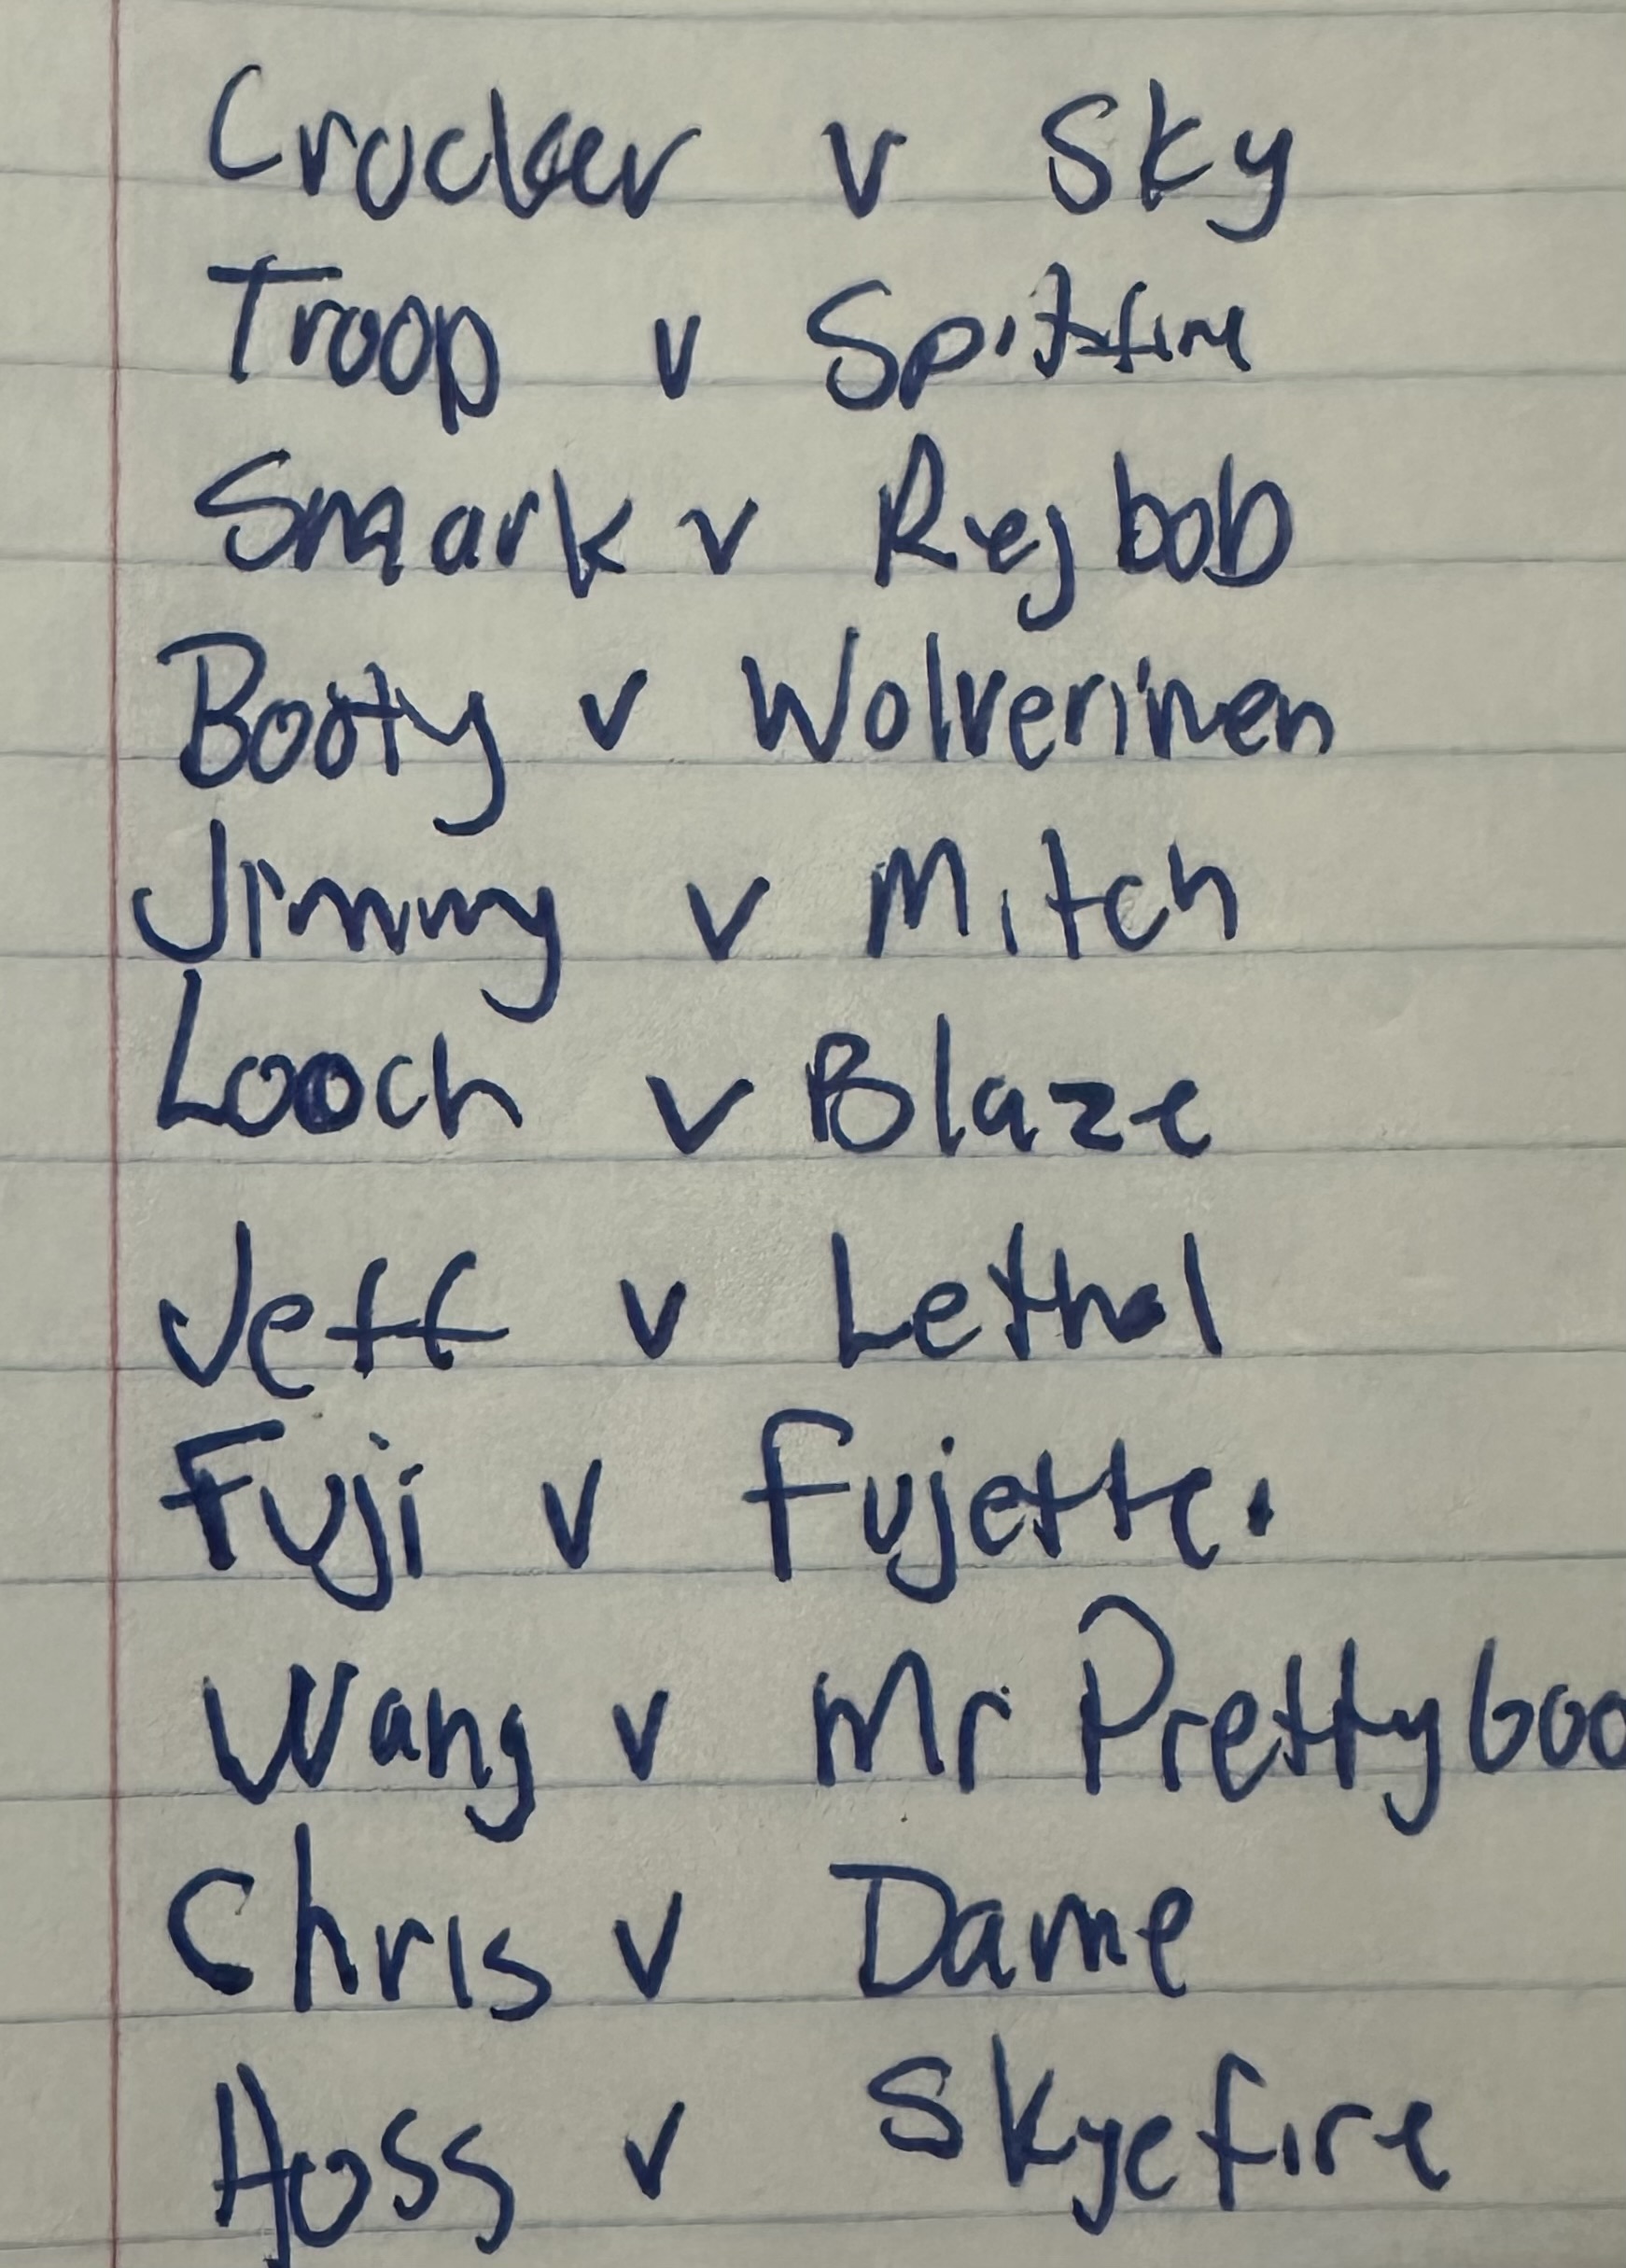 Crocker v Sky
Troop v Spitfire
Smark v Rejbob
Booty v Wolverinen
Jimmy v Mitch
Looch v Blaze
Jeff v Lethal
Fuji v Fujette.
Wang v Mr Prettyboo
Chris v Dame
Hoss v Skyefire